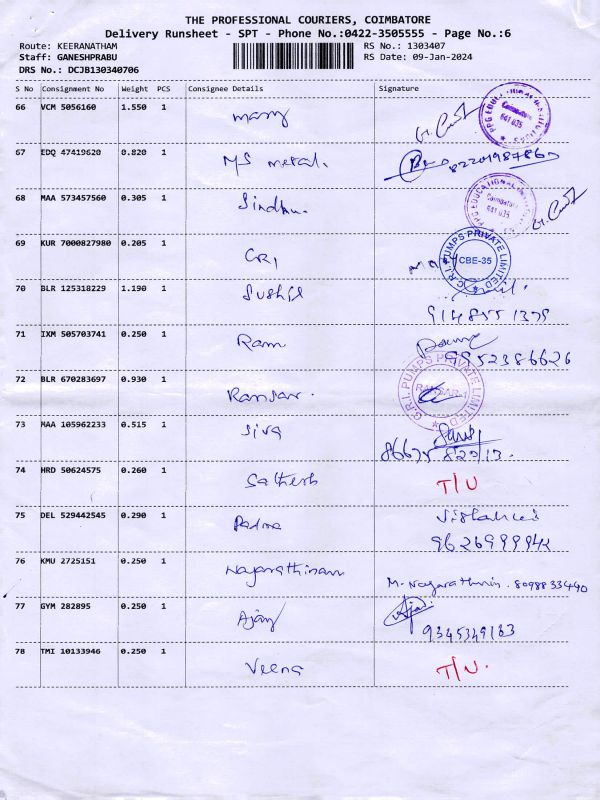 THE PROFESSIONAL COURIERS, COIMBATORE
Delivery Runsheet - SPT - Phone No.:0422-3505555 - Page No.:6
Route: KEERANATHAM RS No.: 1303407
Staff: GANESHPRABU RS Date: 09-Jan-2024
DRS No.: DCJB130340706
S No Consignment No Weight PCS Consignee Details Signature
66 VCM 5056160 1.550 1 many
PPG EDUCATIONAL INSTITUTIONS Coimbatore 641 035
67 EDQ 47419620 0.820 1 MS metal.
68 MAA 573457560 0.305 1 Sindhu.
PPG EDUCATIONAL Coimbatore 641 035
69 KUR 7000827980 0.205 1 GRI
G.R.I. PUMPS PRIVATE LIMITED CBE-35
70 BLR 125318229 1.190 1 Sushil
9148551379
71 IXM 505703741 0.250 1 Ram
9952386626
72 BLR 670283697 0.930 1 Ransar.
G.R.I. PUMPS PRIVATE LIMITED RANSAR
73 MAA 105962233 0.515 1 Siva
74 HRD 50624575 0.260 1 Sathesh T/U
75 DEL 529442545 0.290 1 Padma
9626999942
76 KMU 2725151 0.250 1 Nagarathinam M. Nagarathnin. 8098833440
77 GYM 282895 0.250 1 Ajay Ajai
9345349163
78 TMI 10133946 0.250 1 Veena T/U.